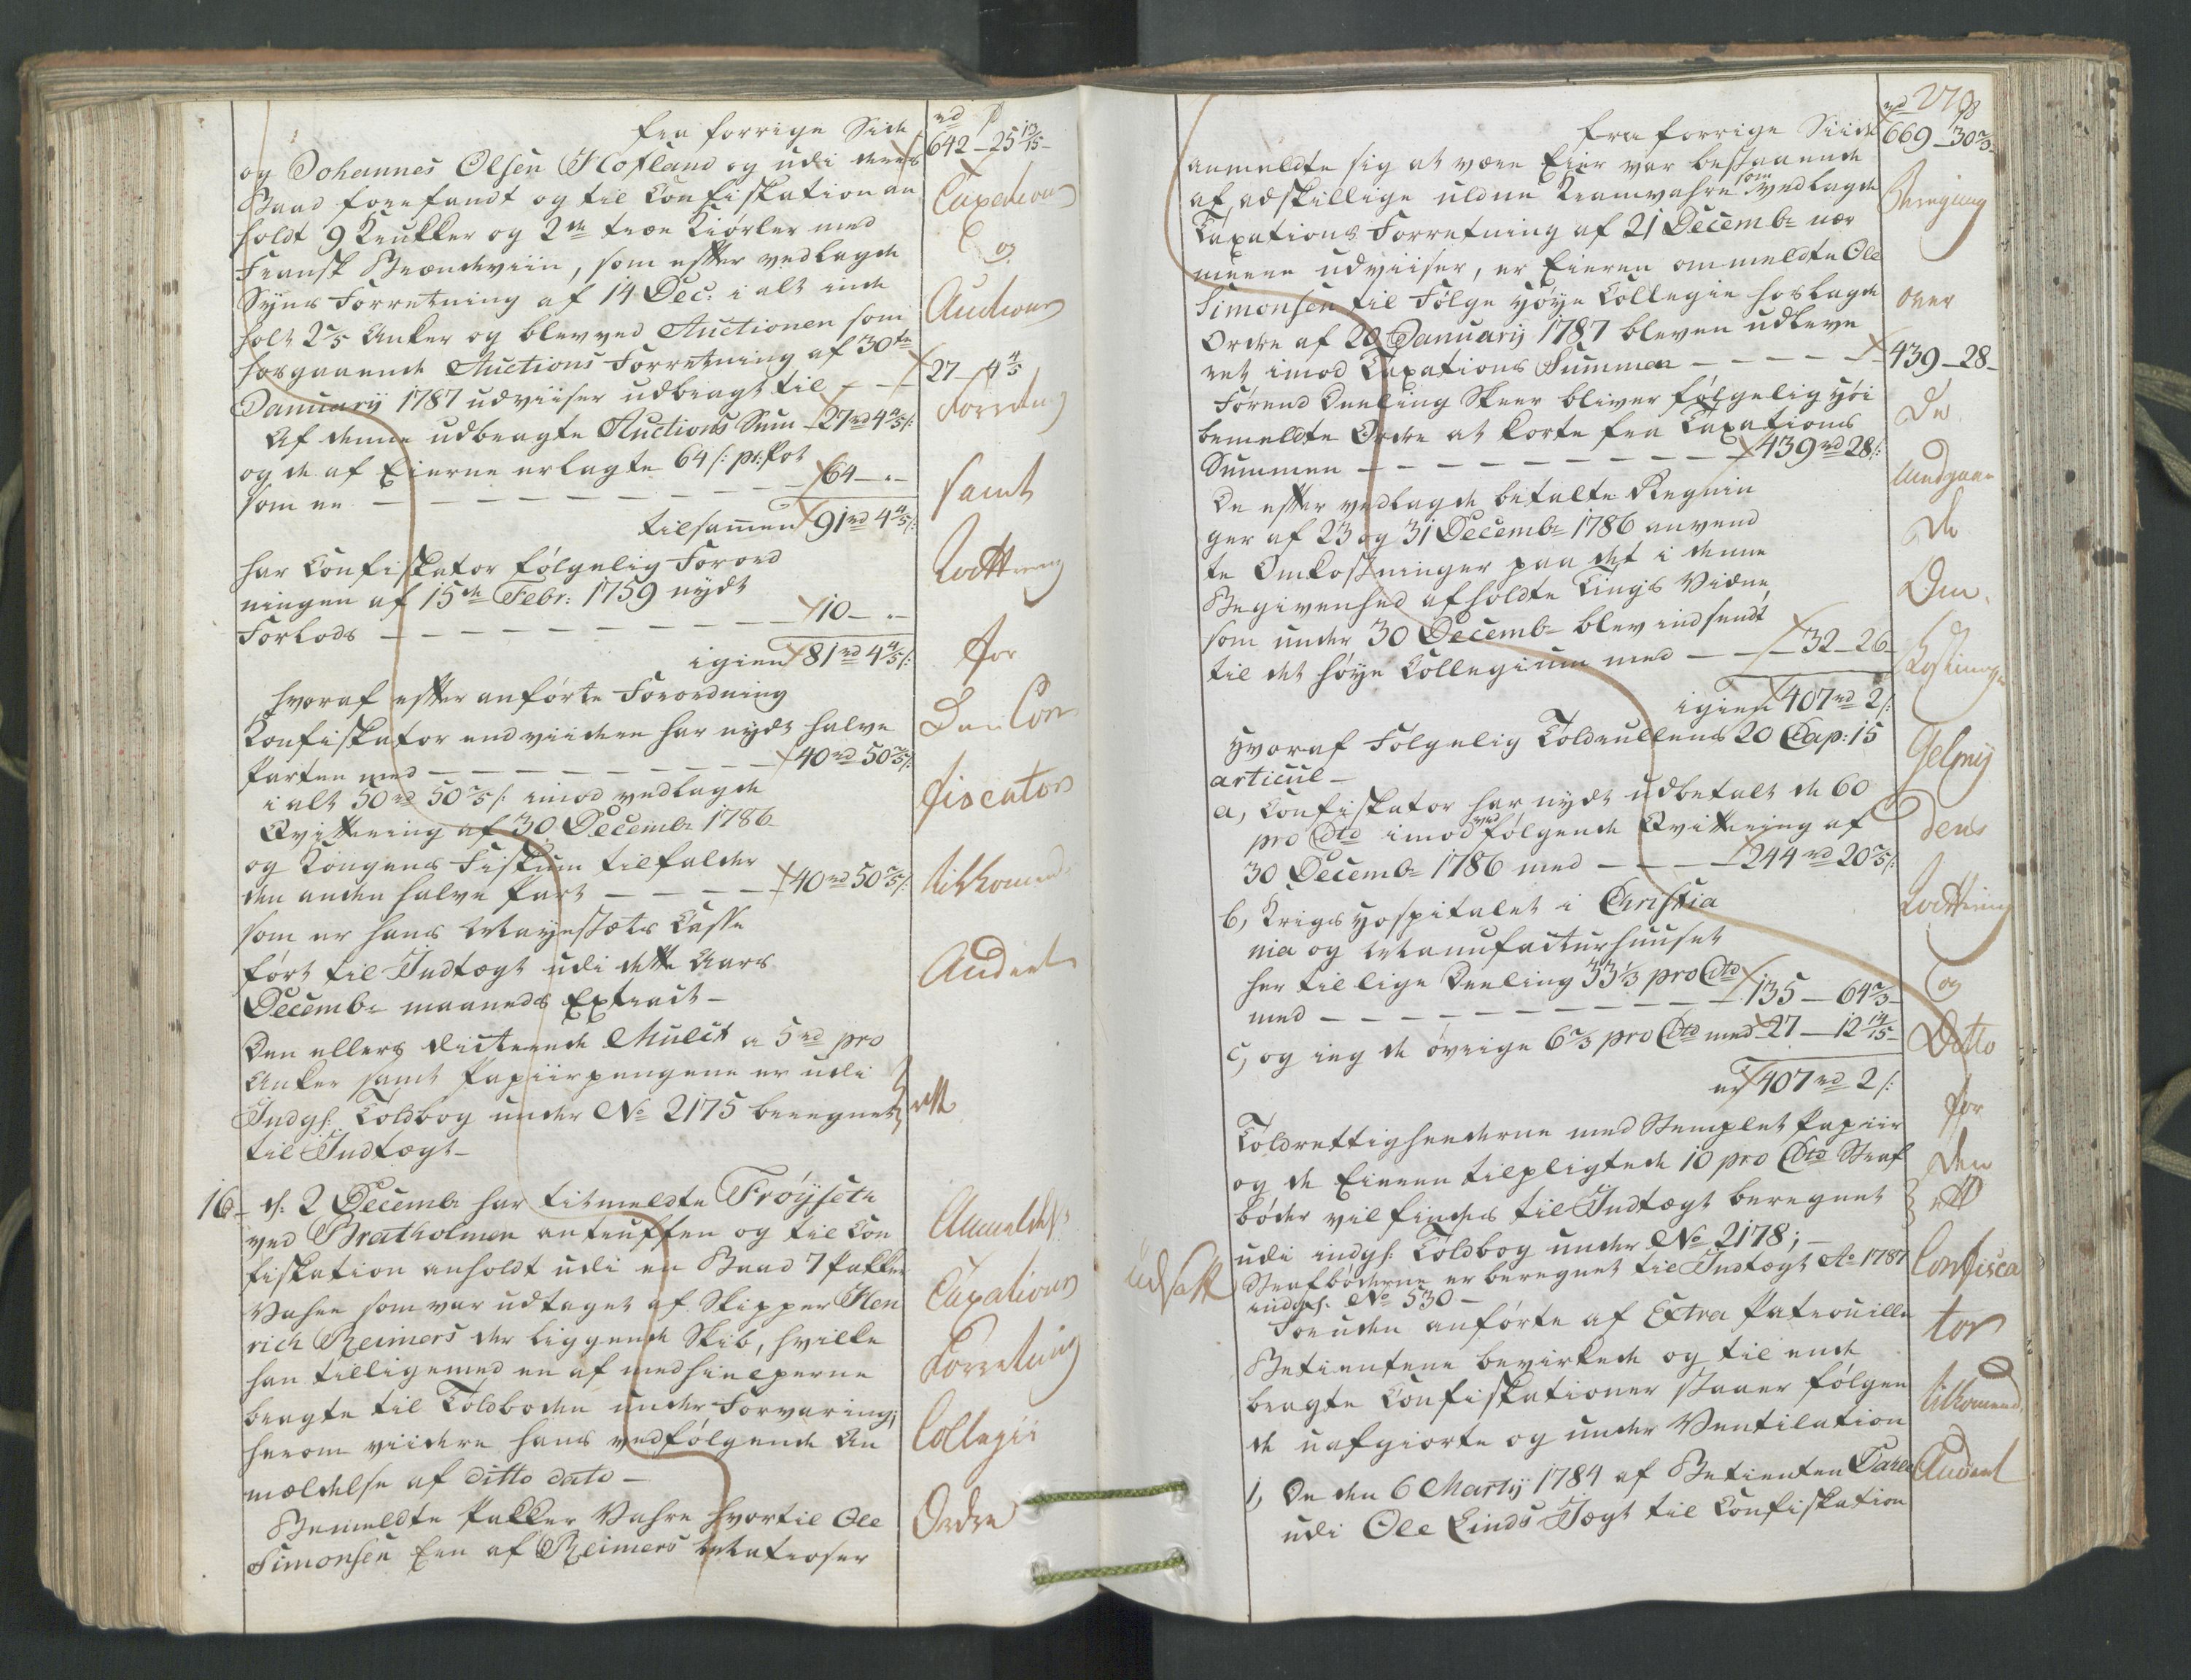 fra forrige Side
rd ß
642 - 25 13/15 -
og Johannes Olsen Hofland og udi deres
Baad forefandt og til Confiskation an
holdt 9 Krukker og 2de træe Kiörler med
Fransk Brændeviin, som efter vedlagde
Syns Forretning af 14 Dec: i alt inde
holt 2 2/5 Anker og blev ved Auctionen som
hosgaaende Auctions Forretning af 30te
January 1787 udviiser udbragt til - -
27 - 4 4/5
Af denne udbragte Auctions Sum 27 rd 4 4/5 ß:
og de af Eierne erlagte 64 ß: pr: Pot
som er - - - - - - - - 64 - " -
tilsamen 91 rd 4 4/5 ß:
har Confiskator følgelig Forord
ningen af 15de Febr: 1759 nydt
Forlods - - - - - - - - 10 - " -
igien 81 rd 4 4/5 ß:
hvoraf efter anførte Forordning
Confiskator endviidere har nydt halve
Parten med - - - - - - - 40 rd 50 2/5 ß:
i alt 50 rd 50 2/5 ß: imod vedlagde
Qvittering af 30 Decembr 1786
og Kongens Fiskum tilfalder
den anden halve Part - - - - 40 rd 50 2/5 ß:
som er hans Mayestæts Casse
ført til Indtægt udi dette Aars
Decembr maaneds Extract -
Den ellers dicterede Mulct a 5 rd pro
Anker samt Papiirpengene er udi
Indgh: Toldbog under No 2175 beregnet
til Indtægt -
16 - d: 2 Decembr har titmeldte Frøysete
ved Bratholmen antruffen og til Con
fiskation anholdt udi en Baad 7 Pakker
Vahre som var udtaget af Skipper Hen
rich Reimers der liggende Skib, hvilke
han tilligemed en af medhielperne
bragte til Toldboden under Forvaring;
herom viidere hans vedfølgende An
mældelse af ditto dato -
Bemeldte Pakker Vahre hvortil Ole
Simonsen Een af Reimers Matroser
Taxations
og
Auctions
Forretning
samt
Qvittering
for
Den Con
fiscator
tilkomende
Andeel
rett
Anmeldelse
Taxations
Forretning
Collegii
Ordre
278
fra forrige Siide
rd ß
669 - 30 2/3 -
anmeldte sig at være Eier var bestaaende
af adskillige uldne Kramvahre som vedlagde
Taxations Forretning af 21 Decembr nær
mere udviiser, er Eieren ommeldte Ole
Simonsen til Følge høye Collegie hoslagde
Ordre af 20 January 1787 bleven udleve
ret imod Taxations Summen - - - - 439 - 28 -
Førend Deeling skeer bliver følgelig høi
bemeldte Ordre at korte fra Taxations
Summen - - - - - - - - 439 rd 28 ß:
De efter vedlagde betalte Regnin
ger af 23 og 31 Decembr 1786 anvend
te Omkostninger paa det i denne
Begivenhed afholdte Tings Vidne,
som under 30 Decembr blev indsendt
til det høye Collegium med - - - 32 - 26 -
igien 407 rd 2 ß:
Hvoraf Følgelig Toldrullens 20 Cap: 15
articul -
a, Confiskator har nydt udbetalt de 60
pro Cto imod vedfølgende Qvittering af
30 Decembr 1786 med - - - - 244 rd 20 2/5 ß:
b, Krigs Hospitalet i Christia
nia og Manufacturhuuset
her til lige Deeling 33 1/3 pro Cto
med - - - - - - - - 135 - 64 2/3 -
c, og ieg de øvrige 6 2/3 pro Cto med 27 - 12 14/15 -
er 407 rd 2 ß:
Toldrettighederne med Stemplet Papiir
og de Eieren tilpligtede 10 pro Cto Straf
bøder vil findes til Indtægt beregnet
udi indgh: Toldbog under No 2178; -
Udsatt
Strafbøderne er beregnet til Indtægt Ao 1787
indgh: No 530 -
Foruden anførte af Extra Patrouille
Betientene bevirkede og til ende
bragte Confiskationer staaer følgen
de uafgiorte og under Ventilation
1, De den 6 Marty 1784 af Betienten Dahl
udi Ole Linds Jægt til Confiskation
Beregning
over
De
Medgaae
de
Om
kostninger
dens
Qvittering
og
Ditto
for
den
rett
Confisca
tor
tilkomend.
Andeel